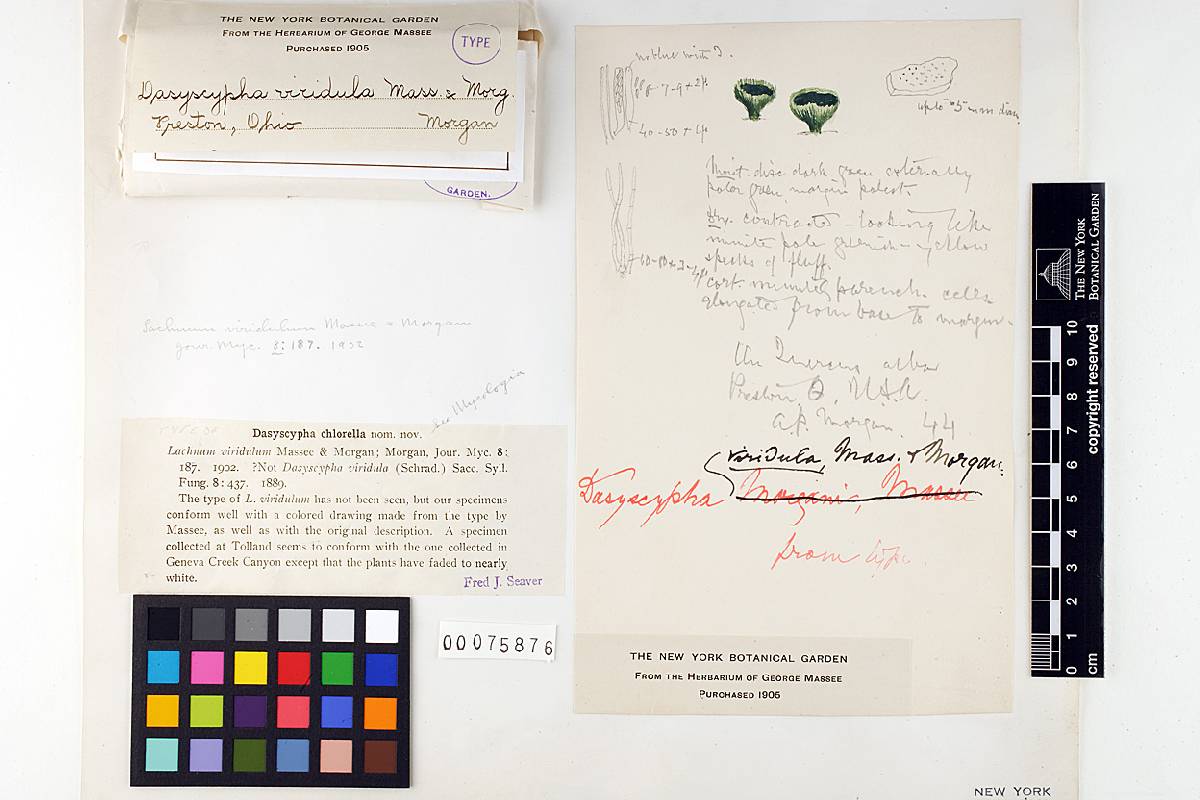 THE NEW YORK BOTANICAL GARDEN
FROM THE HERBARIUM OF GEORGE MASSEE
PURCHASED 1905
TYPE
Dasyscypha viridula Mass. & Morg.
Preston, Ohio Morgan
GARDEN.
Lachnum viridulum Massee & Morgan
Jour. Myc. 8: 187. 1902
See Mycologia
TYPE OF
Dasyscypha chlorella nom. nov.
Lachnum viridulum Massee & Morgan; Morgan, Jour. Myc. 8:
187. 1902. ?Not Dasyscypha viridula (Schrad.) Sacc. Syl.
Fung. 8: 437. 1889.
The type of L. viridulum has not been seen, but our specimens
conform well with a colored drawing made from the type by
Massee, as well as with the original description. A specimen
collected at Tolland seems to conform with the one collected in
Geneva Creek Canyon except that the plants have faded to nearly
white.
Fred J. Seaver
00075876
no blue with I.
7-9 x 2μ
40-50 x 4μ
up to .5 mm diam
Moist. disc dark green externally
paler green, margin palest.
Dry. contracted - looking like
minute pale greenish-yellow
specks of fluff.
cort. minutely parench. cells
elongated from base to margin.
On Quercus alba
Preston, O, U.S.A.
A.P. Morgan. 44
viridula, Mass. & Morgan.
Dasyscypha Morgani, Massee
from type.
THE NEW YORK BOTANICAL GARDEN
FROM THE HERBARIUM OF GEORGE MASSEE
PURCHASED 1905
THE NEW YORK
BOTANICAL GARDEN
copyright reserved
10
9
8
7
6
5
4
3
2
1
0
cm
NEW YORK